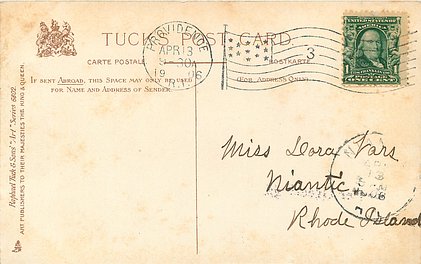 TUCK'S POST CARD.
CARTE POSTALE
POSTKARTE
IF SENT ABROAD, THIS SPACE MAY ONLY BE USED
FOR NAME AND ADDRESS OF SENDER.
(FOR ADDRESS ONLY)
PROVIDENCE
APR 13
19 06
R.I.
3
Raphael Tuck & Sons' "Art" Series 6402.
ART PUBLISHERS TO THEIR MAJESTIES THE KING & QUEEN.
Miss Dora Vars
Niantic
Rhode Island